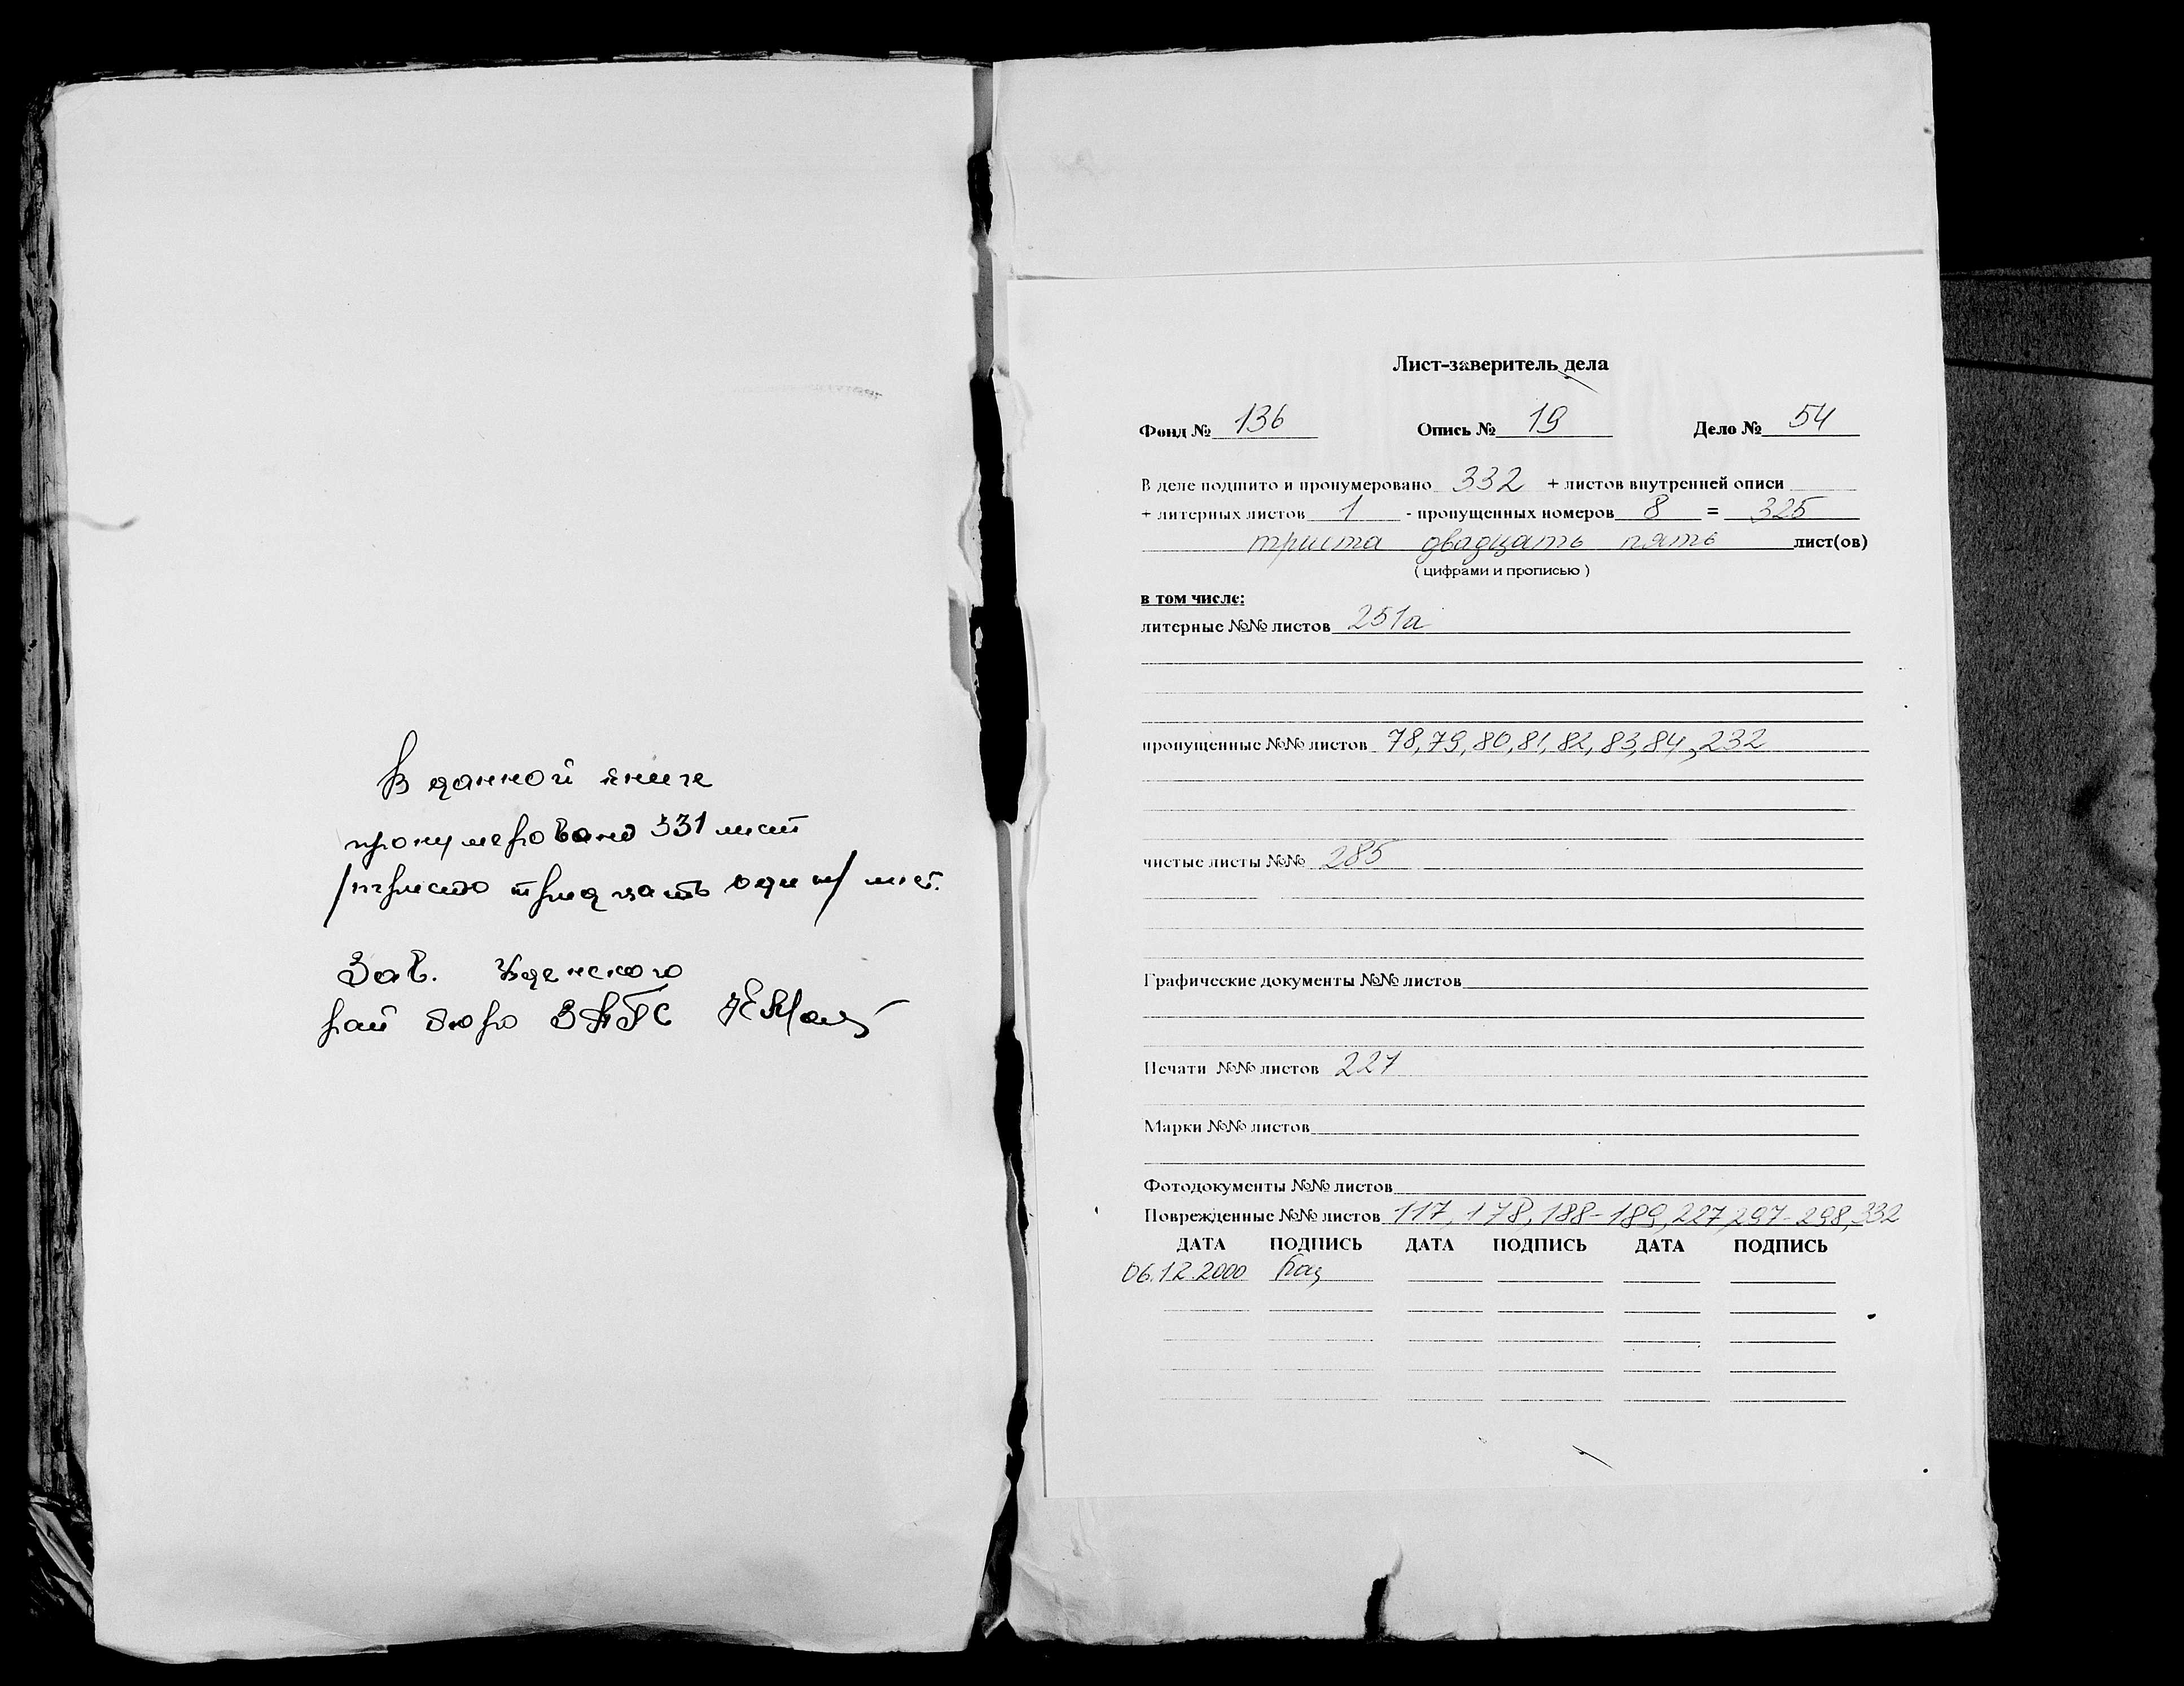 В данной книге
пронумеровано 331 лист
/триста тридцать один/ лист.
Зав. Уденского
рай бюро ЗАГС
Лист-заверитель дела
Фонд № 136 Опись № 19 Дело № 54
В деле подшито и пронумеровано 332 + листов внутренней описи
+ литерных листов 1 - пропущенных номеров 8 = 325
триста двадцать пять лист(ов)
( цифрами и прописью )
в том числе:
литерные №№ листов 251а
пропущенные №№ листов 78, 79, 80, 81, 82, 83, 84, 232
чистые листы №№ 285
Графические документы №№ листов
Печати №№ листов 227
Марки №№ листов
Фотодокументы №№ листов
Поврежденные №№ листов 117, 178, 188-189, 227, 297-298, 332
ДАТА ПОДПИСЬ ДАТА ПОДПИСЬ ДАТА ПОДПИСЬ
06.12.2000